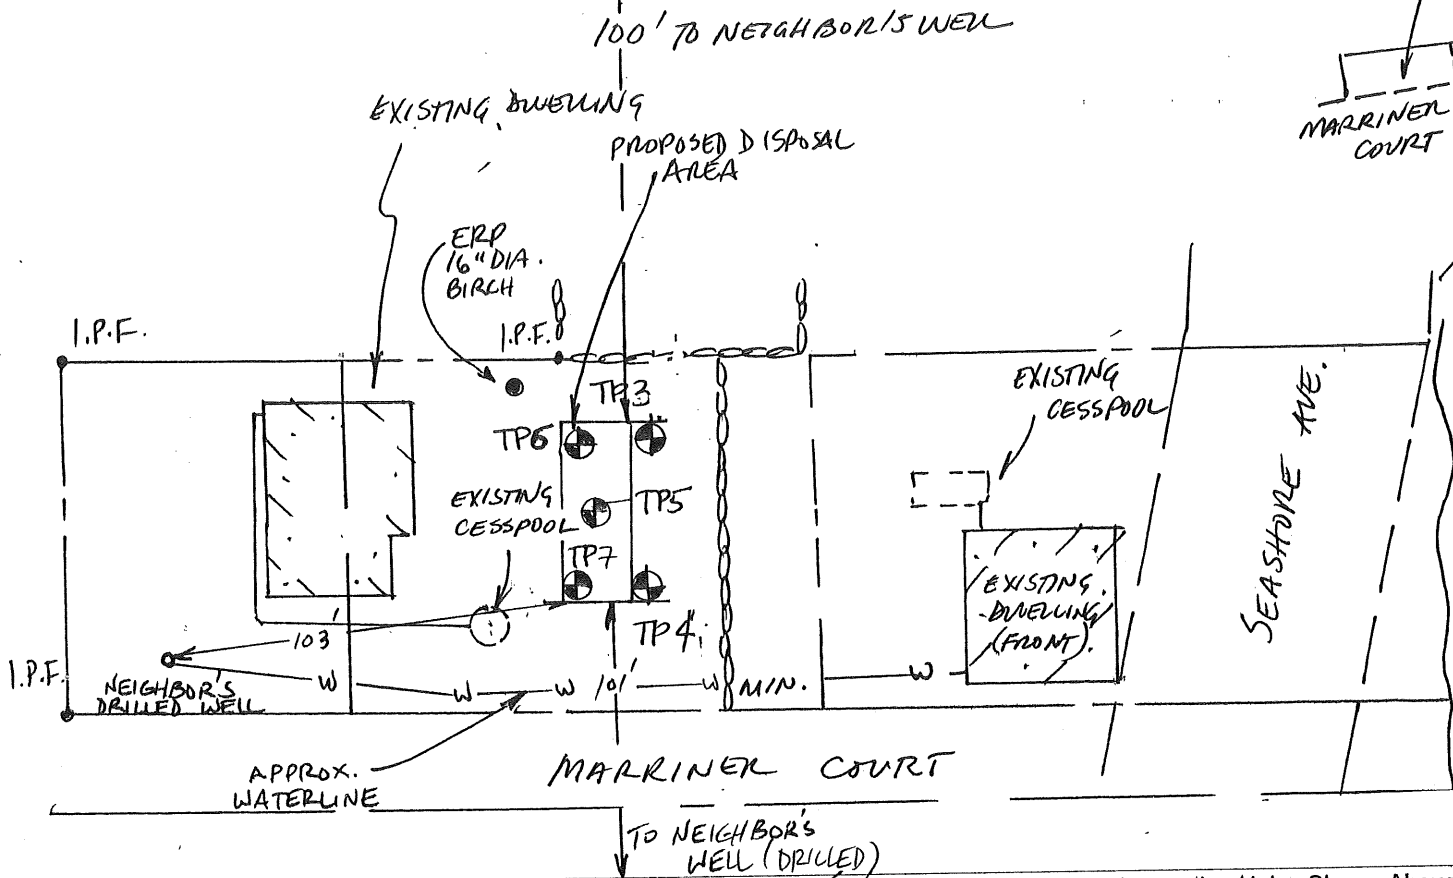 100' TO NEIGHBOR'S WELL
EXISTING DWELLING
PROPOSED DISPOSAL
AREA
MARRINER
COURT
ERP
16" DIA.
BIRCH
I.P.F.
I.P.F.
TP3
TP6
EXISTING
CESSPOOL
TP5
EXISTING
CESSPOOL
TP7
SEASHORE AVE.
EXISTING
DWELLING
(FRONT)
103'
TP4
I.P.F.
NEIGHBOR'S
DRILLED WELL
W W W 101' W MIN. W
APPROX.
WATERLINE
MARRINER COURT
TO NEIGHBOR'S
WELL (DRILLED)